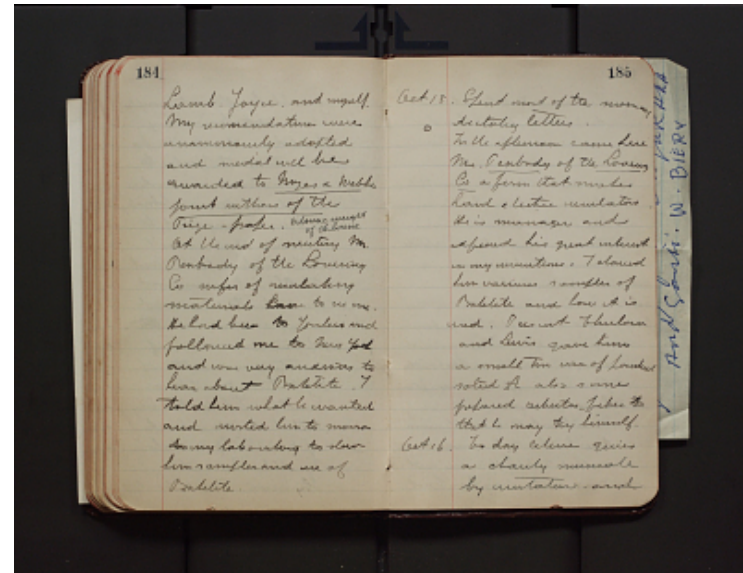 184
Lamb. Joyce. and myself.
My recommendations were
unanimously adopted
and medal will be
awarded to Noyes & Webbe
joint authors of the
Prize-paper. Atomic weight
of chlorine
At the end of meeting Mr.
Peabody of the Lovering
Co mfrs of insulating
materials came to see me.
He had been to Yonkers and
followed me to New York
and was very anxious to
hear about Bakelite. I
told him what he wanted
and invited him to morrow
to my laboratory to show
him samples and use of
Bakelite.
185
Oct 15. Spent most of the morning
dictating letters.
In the afternoon came here
Mr. Peabody of the Lovering
Co a firm that makes
hard electric insulators
He is manager and
expressed his great interest
in my inventions. I showed
him various samples of
Bakelite and how it is
used. Thurlow
and Lewis gave him
a small tin can of
A also some
prepared asbestos fibre so
that he may try himself.
Oct 16. To day Celine gives
a charity musicale
by invitation and
W. BIERY